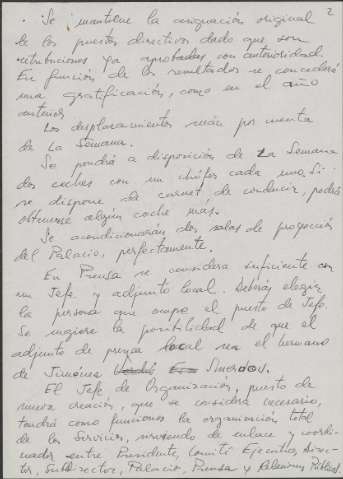 2
. Se mantiene la asignación original
de los puestos directivos dado que son
retribuciones ya aprobadas con anterioridad.
En función de los resultados se concederá
una gratificación, como en el año
anterior.
Los desplazamientos serán por cuenta
de La Semana.
Se pondrá a disposición de La Semana
dos coches con un chófer cada uno. Si
se dispone de carnet de conducir, podrá
obtenerse algún coche más.
Se acondicionarán dos salas de proyección
del Palacio, perfectamente.
En Prensa se considera suficiente con
un Jefe y adjunto local. Deberás elegir
la persona que ocupe el puesto de Jefe.
Se sugiere la posibilidad de que el
adjunto de prensa local sea el hermano
de Jiménez
El Jefe de Organización, puesto de
nueva creación, que se considera necesario,
tendrá como funciones la organización total
de los Servicios, sirviendo de enlace y coordi-
nador entre Presidente, Comité Ejecutivo, Direc-
tor, Subdirector, Palacio, Prensa y Relaciones Públicas.